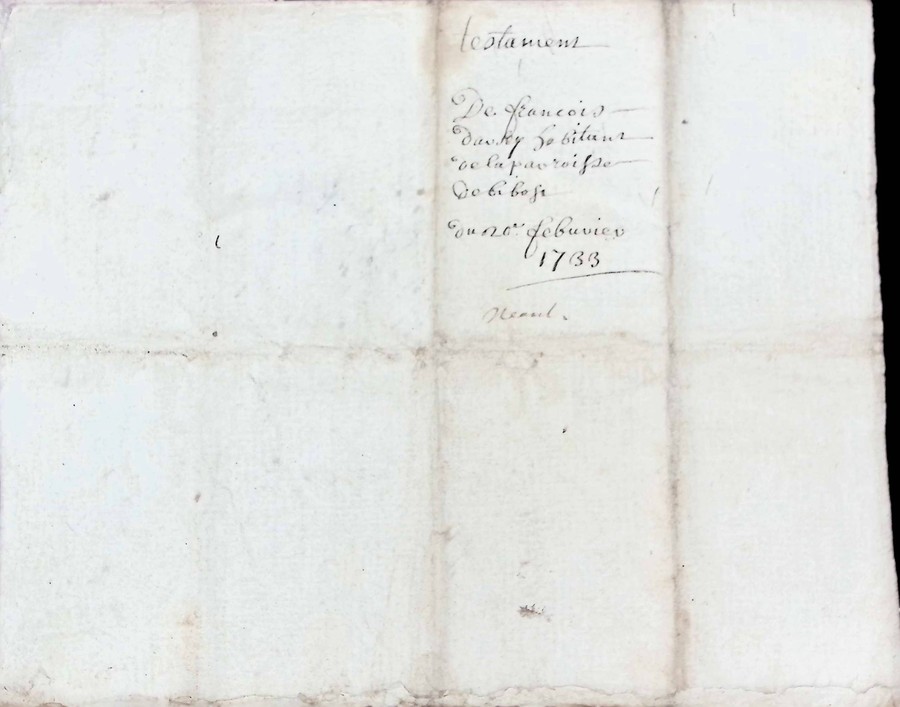 testament
De francois
habitant
de la parroisse
De bibost
du 20e. febuvier
1733